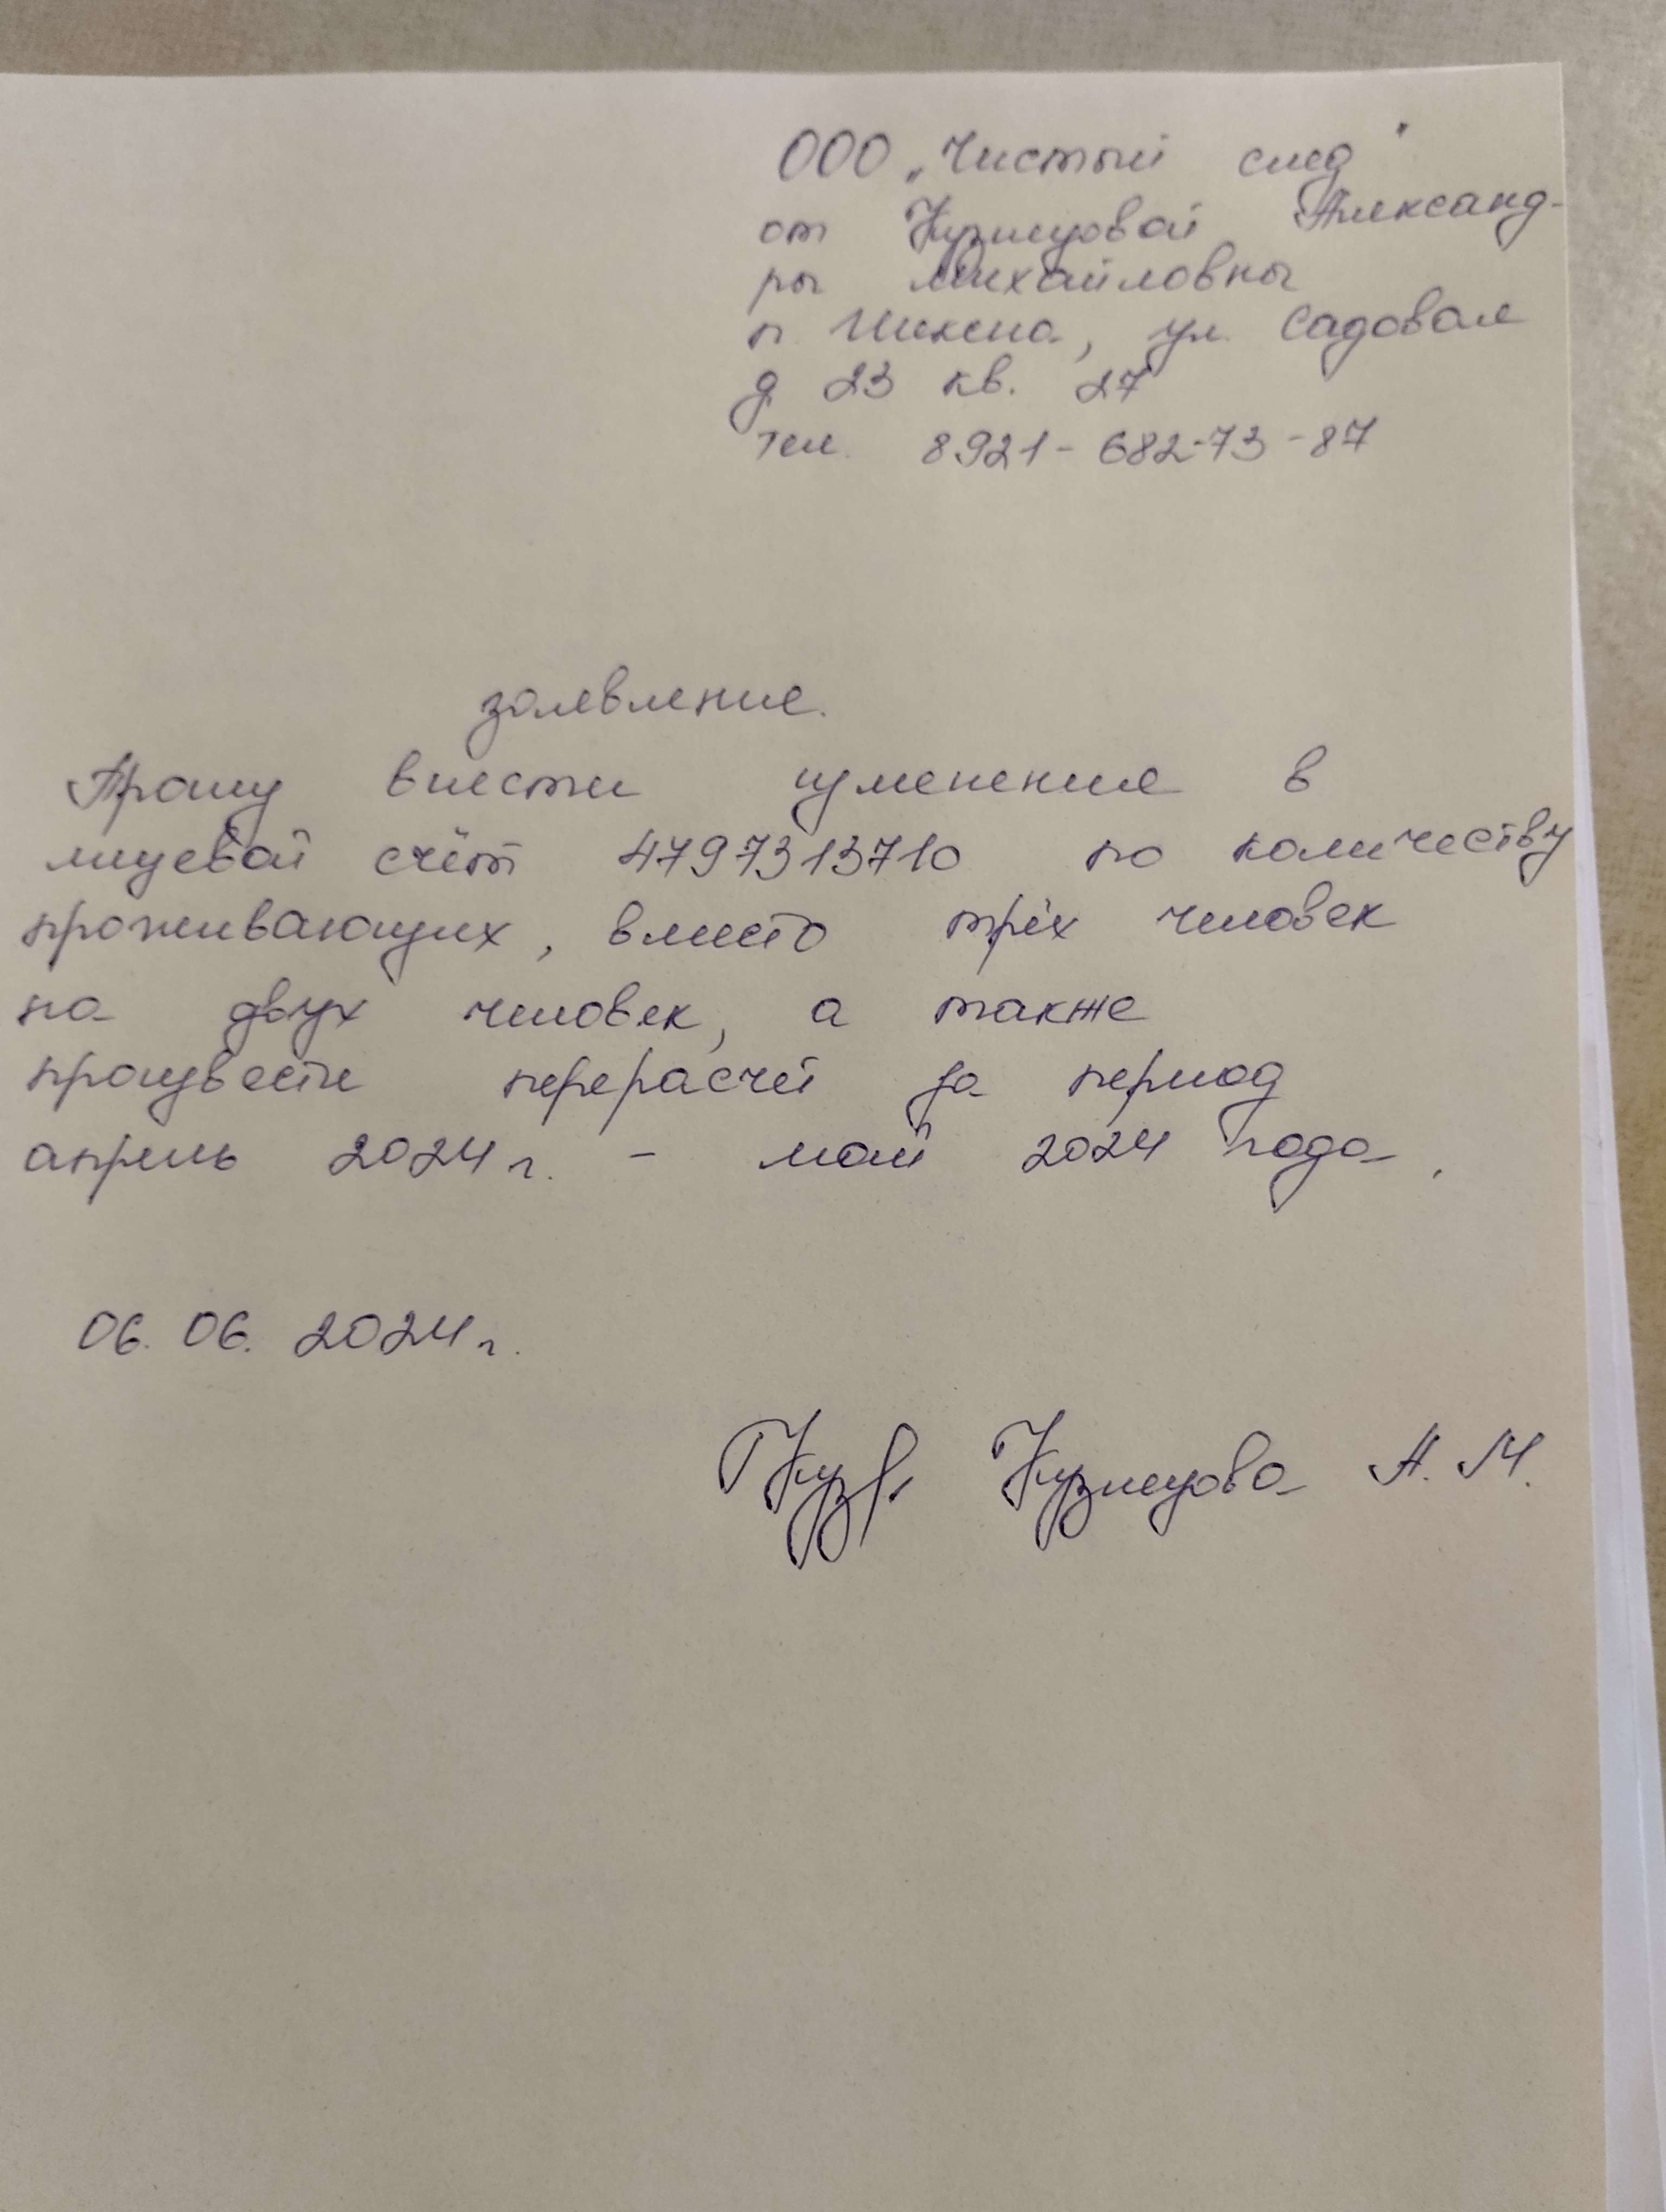 ООО „Чистый след"
от Кузнецовой Александ-
ры Михайловны
п. Шексна, ул. Садовая
д 23 кв. 27
тел. 8921-682-73-87
заявление.
Прошу внести изменение в
лицевой счёт 4797313710 по количеству
проживающих, вместо трёх человек
на двух человек, а также
произвести перерасчёт за период
апрель 2024 г. - май 2024 года.
06.06.2024 г.
Кузнецова А. М.